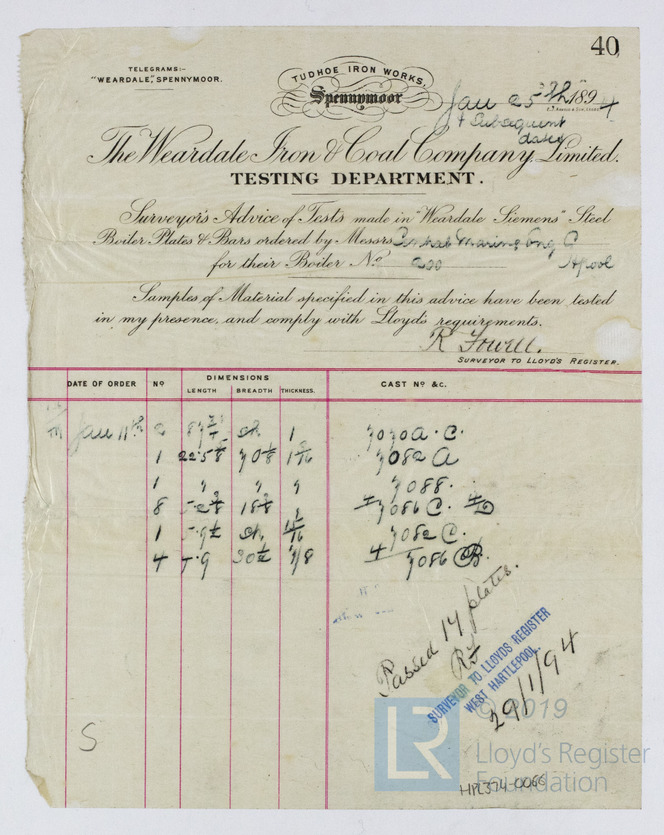 40
TELEGRAMS:-
"WEARDALE," SPENNYMOOR.
TUDHOE IRON WORKS,
Spennymoor
Jan 25th 1894
& Subsequent
dates
The Weardale Iron & Coal Company, Limited.
TESTING DEPARTMENT.
Surveyor's Advice of Tests made in "Weardale Siemens" Steel
Boiler Plates & Bars ordered by Messrs Central Marine Eng C
for their Boiler No 200 Hpool
Samples of Material specified in this advice have been tested
in my presence, and comply with Lloyd's requirements.
R Fowell.
SURVEYOR TO LLOYD'S REGISTER.
DATE OF ORDER No DIMENSIONS CAST No &c.
LENGTH BREADTH THICKNESS.
Jan 11th 2 1 7070A. C.
1 70 1/8 7082 A
1 " " " 7088.
8 7086 C. 4D
1 7082 C.
4 30 1/2 7/8 4 7086 B.
Passed 17 plates.
RF
SURVEYOR TO LLOYDS REGISTER
WEST HARTLEPOOL.
29/1/94
S
© 2019
LR
Lloyd's Register
Foundation
HPL374-0066